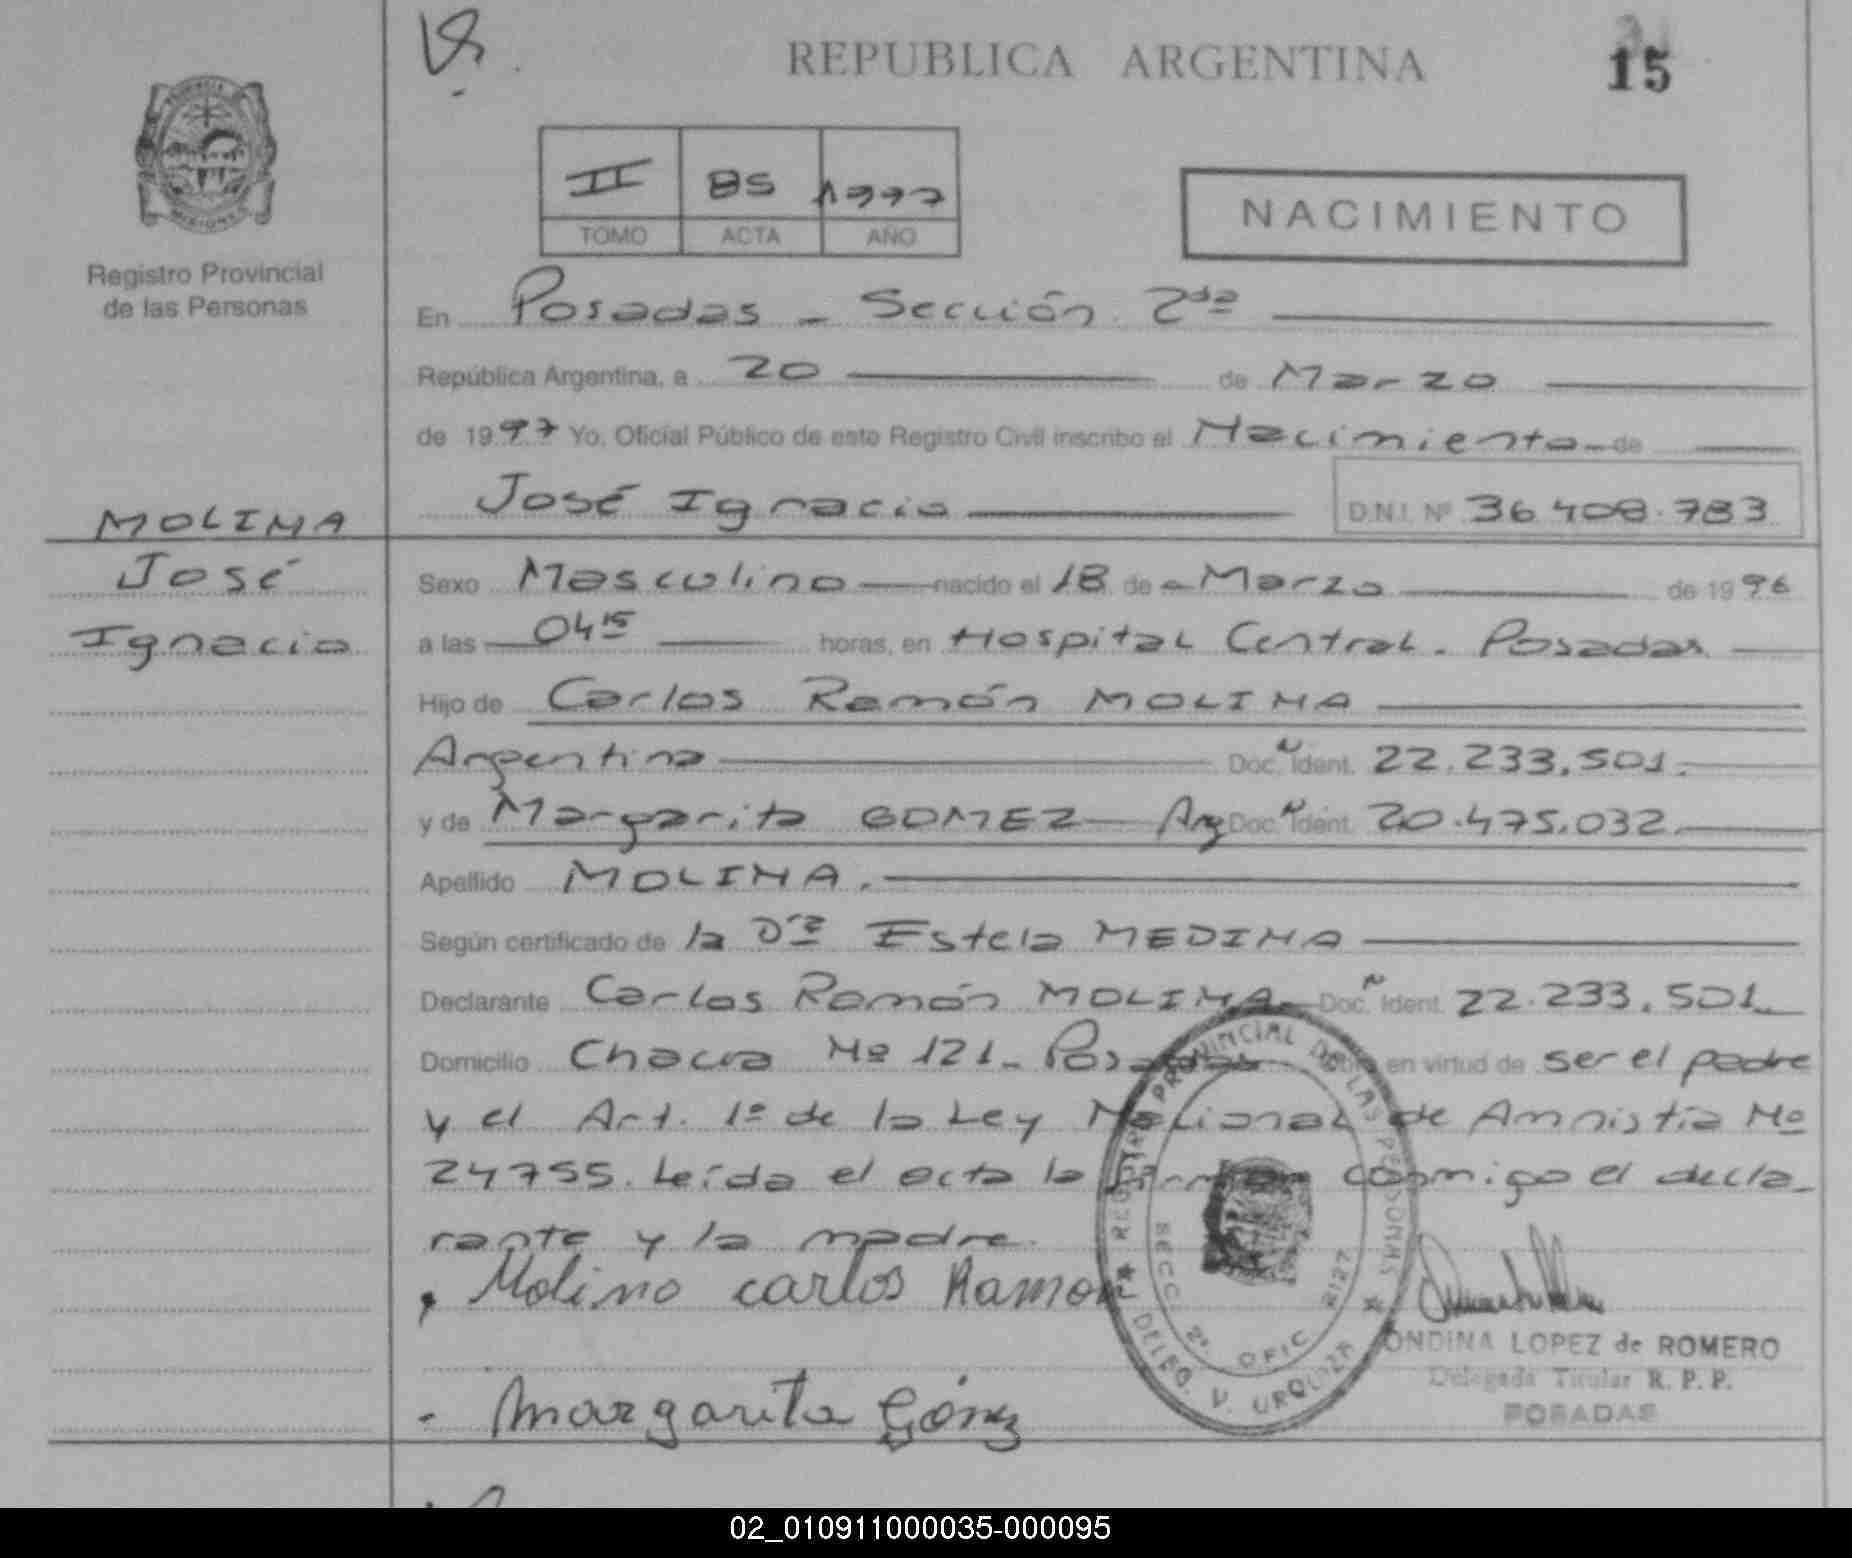 REPUBLICA ARGENTINA
15
II 85 1997
TOMO ACTA AÑO
NACIMIENTO
Registro Provincial
de las Personas
En Posadas - Sección 2da
República Argentina, a 20 de Marzo
de 1997 Yo, Oficial Público de este Registro Civil inscribo el Nacimiento de
José Ignacio D.N.I. Nº 36.408.783
MOLINA
José
Ignacio
Sexo Masculino nacido el 18 de Marzo de 1996
a las 04 15 horas, en Hospital Central. Posadas
Hijo de Carlos Ramón MOLINA
Argentina Doc. Ident. 22.233.501.
y de Margarita GOMEZ Arg Doc. Ident. 20.475.032.
Apellido MOLINA.
Según certificado de la Dra Estela MEDINA
Declarante Carlos Ramón MOLINA Doc. Ident. 22.233.501
Domicilio Chacra Nº 121 - Posadas en virtud de ser el padre
y el Art. 1º de la Ley Nacional de Amnistía Nº
24755. Leída el acta la firman conmigo el decla-
rante y la madre.
Molino carlos Ramon
Margarita Gómez
REGISTRO PROVINCIAL DE LAS PERSONAS
SECC 2º. OFIC 2127
DELEG. V. URQUIZA
ONDINA LOPEZ de ROMERO
Delegada Titular R. P. P.
POSADAS
MISIONES
02_010911000035-000095